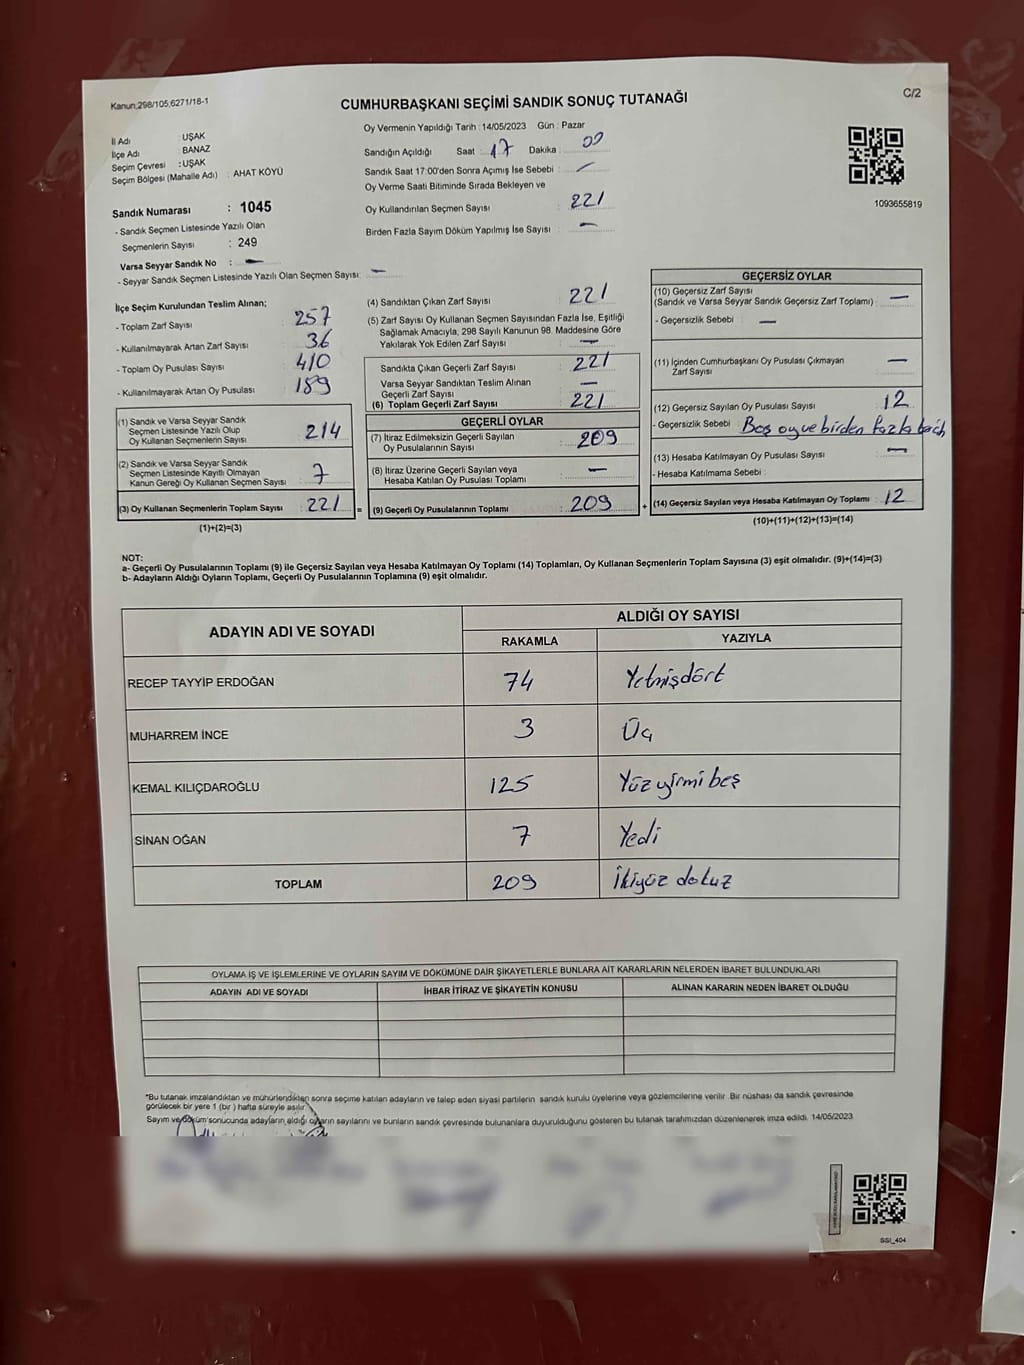 Kanun;298/105;6271/18-1
C/2
CUMHURBAŞKANI SEÇİMİ SANDIK SONUÇ TUTANAĞI
İl Adı : UŞAK
İlçe Adı : BANAZ
Seçim Çevresi : UŞAK
Seçim Bölgesi (Mahalle Adı) : AHAT KÖYÜ
Sandık Numarası : 1045
- Sandık Seçmen Listesinde Yazılı Olan
Seçmenlerin Sayısı : 249
Varsa Seyyar Sandık No : —
- Seyyar Sandık Seçmen Listesinde Yazılı Olan Seçmen Sayısı: —
Oy Vermenin Yapıldığı Tarih : 14/05/2023 Gün : Pazar
Sandığın Açıldığı Saat : 17 Dakika : 00
Sandık Saat 17:00'den Sonra Açımış İse Sebebi : —
Oy Verme Saati Bitiminde Sırada Bekleyen ve
Oy Kullandırılan Seçmen Sayısı : 221
Birden Fazla Sayım Döküm Yapılmış İse Sayısı : —
1093655819
İlçe Seçim Kurulundan Teslim Alınan;
- Toplam Zarf Sayısı : 257
- Kullanılmayarak Artan Zarf Sayısı : 36
- Toplam Oy Pusulası Sayısı : 410
- Kullanılmayarak Artan Oy Pusulası : 189
(1) Sandık ve Varsa Seyyar Sandık
Seçmen Listesinde Yazılı Olup
Oy Kullanan Seçmenlerin Sayısı : 214
(2) Sandık ve Varsa Seyyar Sandık
Seçmen Listesinde Kayıtlı Olmayan
Kanun Gereği Oy Kullanan Seçmen Sayısı : 7
(3) Oy Kullanan Seçmenlerin Toplam Sayısı : 221 =
(1)+(2)=(3)
(4) Sandıktan Çıkan Zarf Sayısı : 221
(5) Zarf Sayısı Oy Kullanan Seçmen Sayısından Fazla İse, Eşitliği
Sağlamak Amacıyla; 298 Sayılı Kanunun 98. Maddesine Göre
Yakılarak Yok Edilen Zarf Sayısı : —
Sandıkta Çıkan Geçerli Zarf Sayısı : 221
Varsa Seyyar Sandıktan Teslim Alınan
Geçerli Zarf Sayısı : —
(6) Toplam Geçerli Zarf Sayısı : 221
GEÇERLİ OYLAR
(7) İtiraz Edilmeksizin Geçerli Sayılan
Oy Pusulası Sayısı : 209
(8) İtiraz Üzerine Geçerli Sayılan veya
Hesaba Katılan Oy Pusulası Toplamı : —
(9) Geçerli Oy Pusulalarının Toplamı : 209 +
GEÇERSİZ OYLAR
(10) Geçersiz Zarf Sayısı
(Sandık ve Varsa Seyyar Sandık Geçersiz Zarf Toplamı) : —
- Geçersizlik Sebebi : —
(11) İçinden Cumhurbaşkanı Oy Pusulası Çıkmayan
Zarf Sayısı : —
(12) Geçersiz Sayılan Oy Pusulası Sayısı : 12
- Geçersizlik Sebebi : Boş oy ve birden fazla tercih
(13) Hesaba Katılmayan Oy Pusulası Sayısı : —
- Hesaba Katılmama Sebebi :
(14) Geçersiz Sayılan veya Hesaba Katılmayan Oy Toplamı : 12
(10)+(11)+(12)+(13)=(14)
NOT:
a- Geçerli Oy Pusulalarının Toplamı (9) ile Geçersiz Sayılan veya Hesaba Katılmayan Oy Toplamı (14) Toplamları, Oy Kullanan Seçmenlerin Toplam Sayısına (3) eşit olmalıdır. (9)+(14)=(3)
b- Adayların Aldığı Oyların Toplamı, Geçerli Oy Pusulalarının Toplamına (9) eşit olmalıdır.
ADAYIN ADI VE SOYADI ALDIĞI OY SAYISI
RAKAMLA YAZIYLA
RECEP TAYYİP ERDOĞAN 74 Yetmişdört
MUHARREM İNCE 3 Üç
KEMAL KILIÇDAROĞLU 125 Yüz yirmi beş
SİNAN OĞAN 7 Yedi
TOPLAM 209 İkiyüz dokuz
OYLAMA İŞ VE İŞLEMLERİNE VE OYLARIN SAYIM VE DÖKÜMÜNE DAİR ŞİKAYETLERLE BUNLARA AİT KARARLARIN NELERDEN İBARET BULUNDUKLARI
ADAYIN ADI VE SOYADI İHBAR İTİRAZ VE ŞİKAYETİN KONUSU ALINAN KARARIN NEDEN İBARET OLDUĞU
*Bu tutanak imzalandıktan ve mühürlendikten sonra seçime katılan adayların ve talep eden siyasi partilerin sandık kurulu üyelerine veya gözlemcilerine verilir. Bir nüshası da sandık çevresinde
görülecek bir yere 1 (bir) hafta süreyle asılır.
Sayım ve döküm sonucunda adayların aldığı oyların sayılarını ve bunların sandık çevresinde bulunanlara duyurulduğunu gösteren bu tutanak tarafımızdan düzenlenerek imza edildi. 14/05/2023
SSI_404